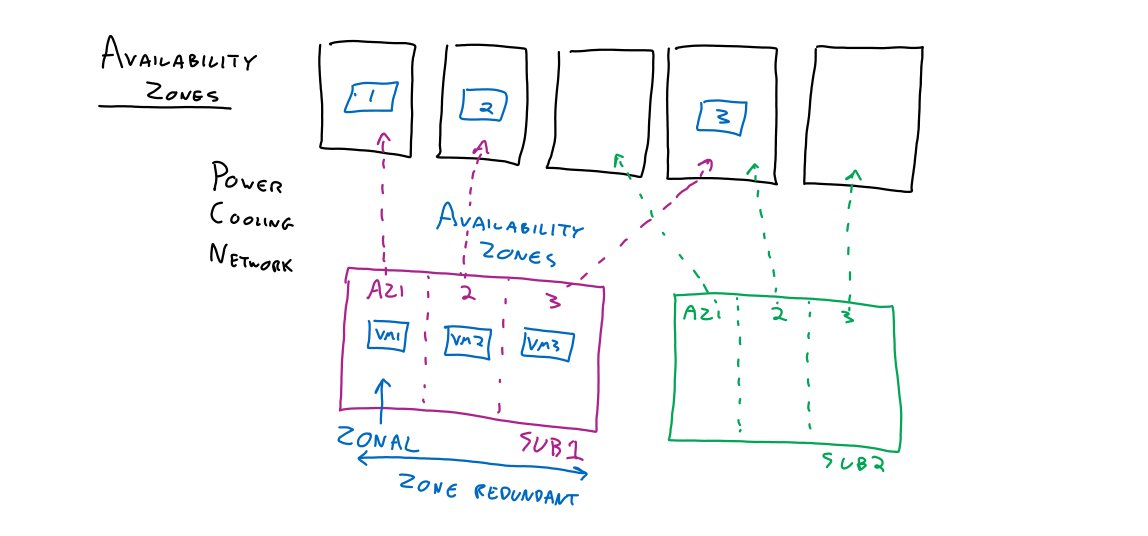 AVAILABILITY
ZONES
1
2
3
POWER
COOLING
NETWORK
AVAILABILITY
ZONES
AZ1 2 3
VM1 VM2 VM3
ZONAL
SUB1
ZONE REDUNDANT
AZ1 2 3
SUB2